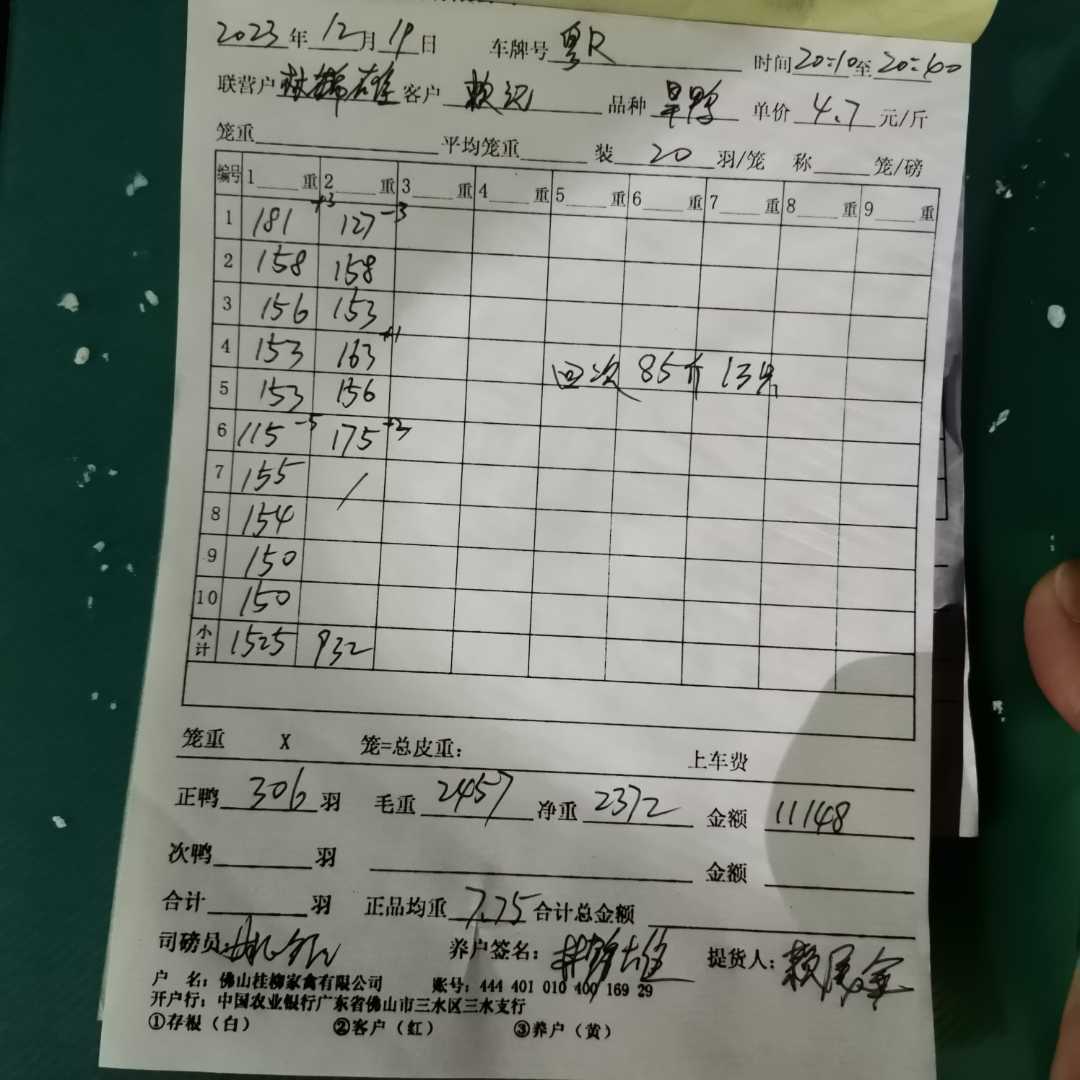 2023年12月19日 车牌号 粤R 时间20:10至20:40
联营户 客户 赖记 品种 旱鸭 单价 4.7 元/斤
笼重 平均笼重 装 20 羽/笼 称 笼/磅
编号 1 重 2 重 3 重 4 重 5 重 6 重 7 重 8 重 9 重
1 181 +3 127 -3
2 158 158
3 156 153
4 153 163 +1
5 153 156
6 115 -5 175 +3
7 155 /
8 154
9 150
10 150
回次 85斤 13只
小计 1525 932
笼重 X 笼=总皮重: 上车费
正鸭 306 羽 毛重 2457 净重 2372 金额 11148
次鸭 羽 金额
合计 羽 正品均重 7.75 合计总金额
司磅员: 养户签名: 提货人:
户 名: 佛山桂柳家禽有限公司 账号: 444 401 010 400 169 29
开户行: 中国农业银行广东省佛山市三水区三水支行
①存根（白） ②客户（红） ③养户（黄）